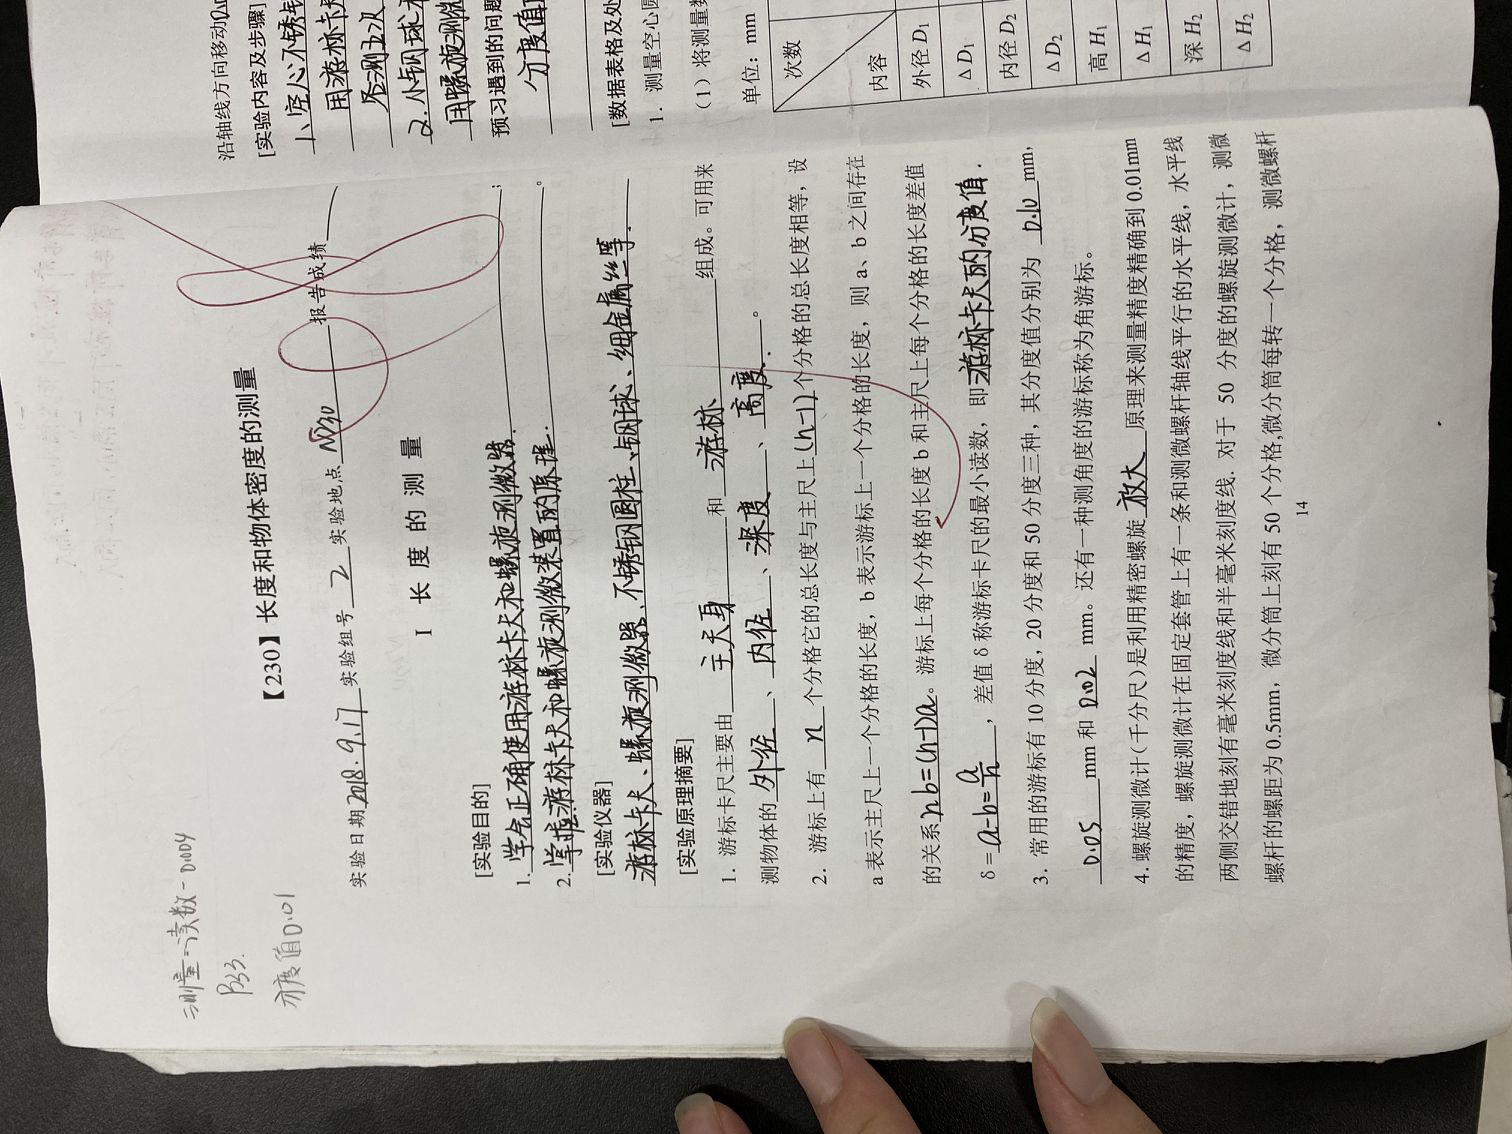 测量=读数-0.004
P33.
分度值0.01
【230】长度和物体密度的测量
实验日期2018.9.17 实验组号 2 实验地点 N230 报告成绩
98
I 长度的测量
[实验目的]
1. 学会正确使用游标卡尺和螺旋测微器.;
2. 掌握游标卡尺和螺旋测微装置的原理.。
[实验仪器]
游标卡尺、螺旋测微器、不锈钢圆柱、钢球、细金属丝等.
[实验原理摘要]
1. 游标卡尺主要由 主尺身 和 游标 组成。可用来
测物体的 外径 、 内径 、 深度 、 高度. 。
2. 游标上有 n 个分格它的总长度与主尺上(n-1)个分格的总长度相等，设
a 表示主尺上一个分格的长度，b 表示游标上一个分格的长度，则 a、b 之间存在
的关系 nb=(n-1)a。游标上每个分格的长度 b 和主尺上每个分格的长度差值
δ= a-b=a/n ，差值 δ 称游标卡尺的最小读数，即游标卡尺的分度值.
3. 常用的游标有 10 分度，20 分度和 50 分度三种，其分度值分别为 0.10 mm，
0.05 mm 和 0.02 mm。还有一种测角度的游标称为角游标。
4. 螺旋测微计（千分尺）是利用精密螺旋 放大 原理来测量精度精确到 0.01mm
的精度，螺旋测微计在固定套管上有一条和测微螺杆轴线平行的水平线，水平线
两侧交错地刻有毫米刻度线和半毫米刻度线. 对于 50 分度的螺旋测微计，测微
螺杆的螺距为 0.5mm，微分筒上刻有 50 个分格,微分筒每转一个分格，测微螺杆
14
沿轴线方向移动
[实验内容及步骤]
1、空心不锈钢
用游标卡尺
各测五次
2. 小钢球
用螺旋测微
预习遇到的问题
分度值
[数据表格及处
1. 测量空心圆
（1）将测量数
单位：mm
次数
内容
外径 D1
ΔD1
内径 D2
ΔD2
高 H1
ΔH1
深 H2
ΔH2